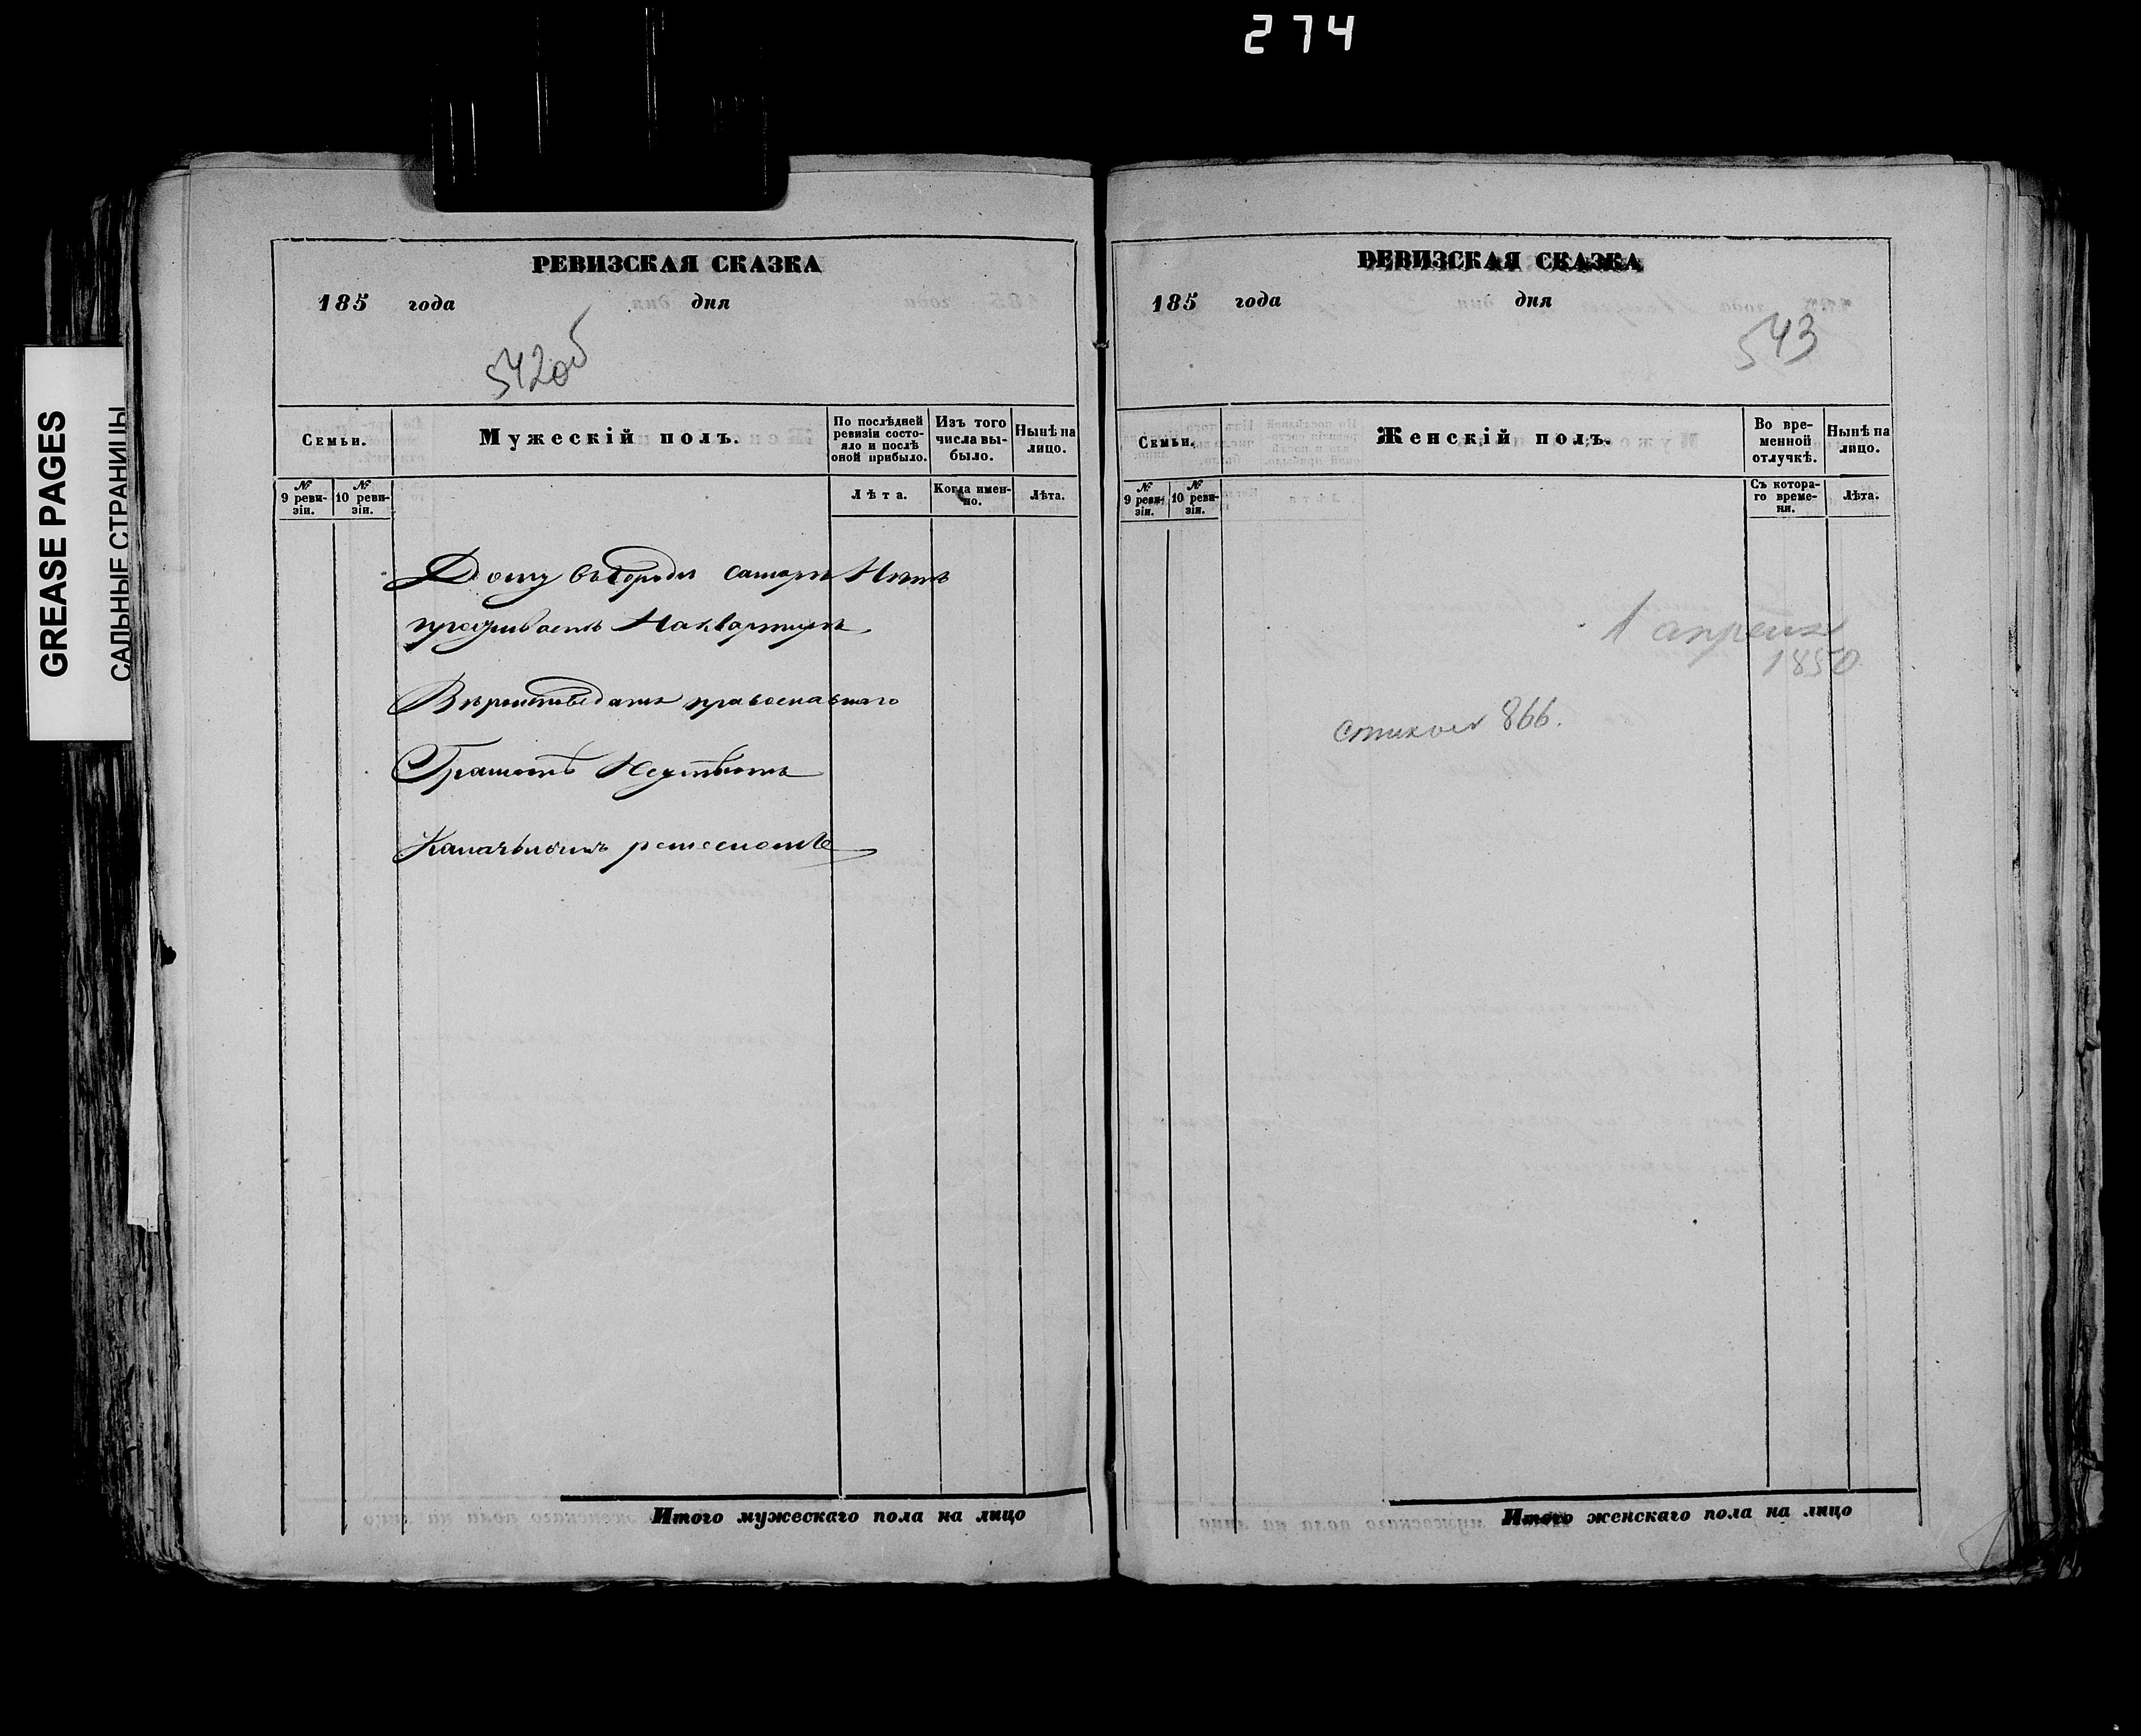 274
GREASE PAGES
САЛЬНЫЕ СТРАНИЦЫ
РЕВИЗСКАЯ СКАЗКА
185 года дня
542об
Семьи.
Мужескій полъ.
По послѣдней ревизіи состо-
яло и послѣ оной прибыло.
Изъ того числа вы-
было.
Нынѣ на лицо.
№ 9 реви-
зіи.
№ 10 реви-
зіи.
Лѣта.
Когда имен-
но.
Лѣта.
Дому въ городѣ самарѣ Нѣтъ
проживаетъ Наквартирѣ
православнаго
Грамотѣ
Итого мужескаго пола на лицо
РЕВИЗСКАЯ СКАЗКА
185 года дня
543
Семьи.
Женскій полъ.
Во вре-
менной
отлучкѣ.
Нынѣ на лицо.
№ 9 реви-
зіи.
№ 10 реви-
зіи.
Съ котора-
го време-
ни.
Лѣта.
1 апреля
1850
866.
Итого женскаго пола на лицо